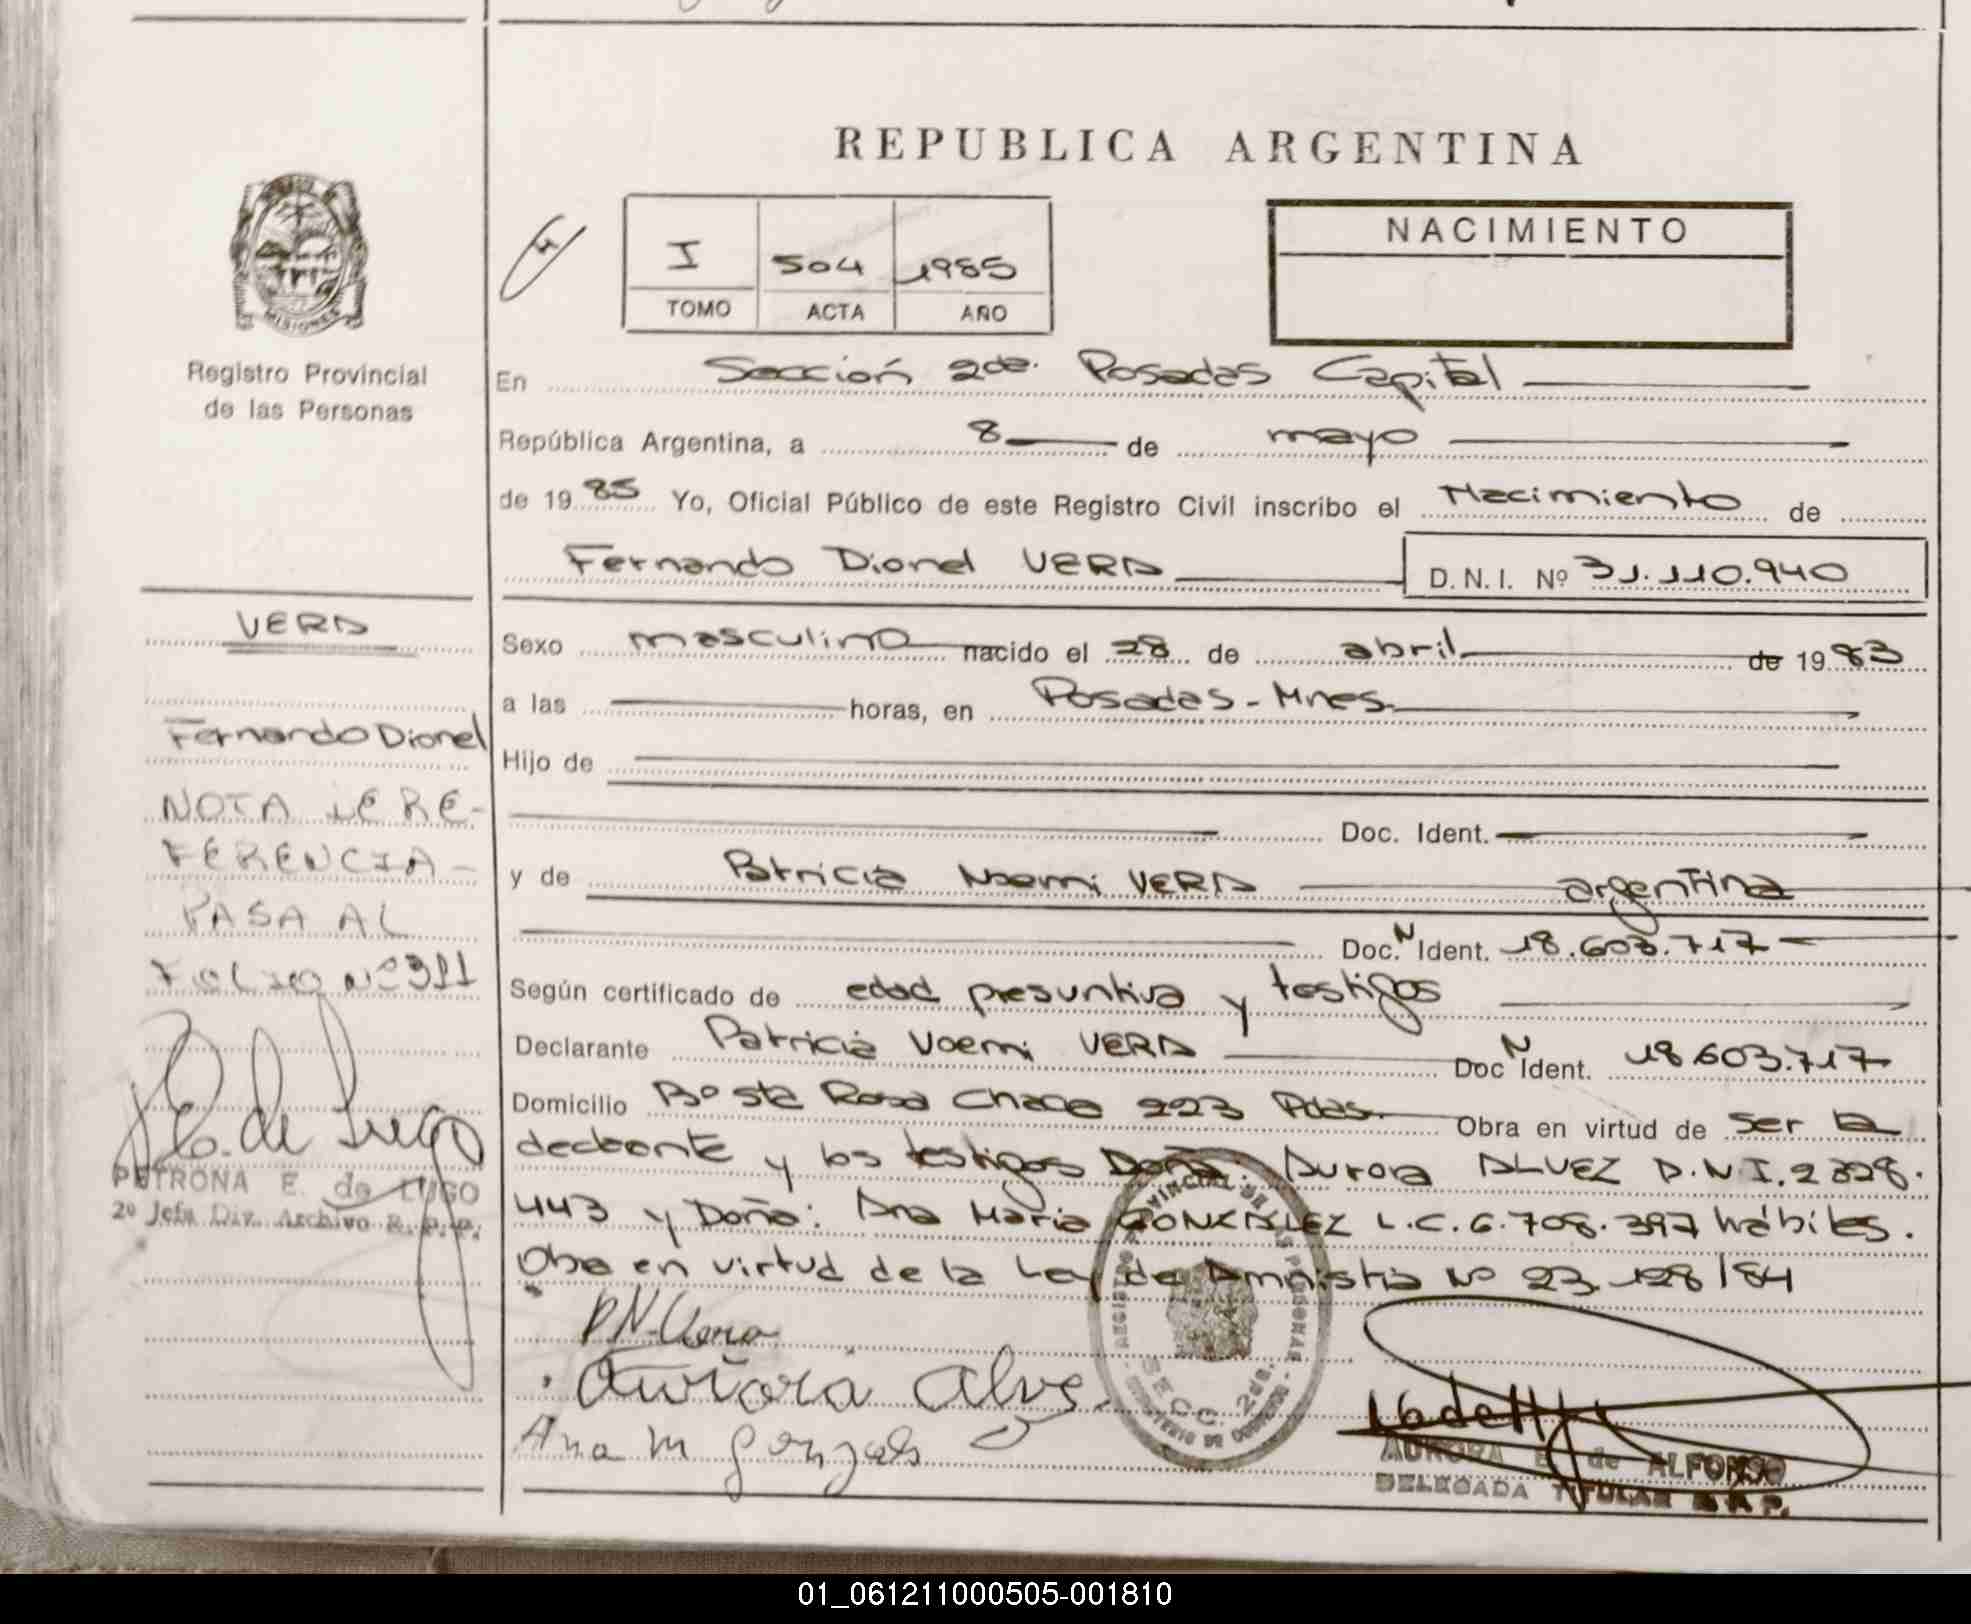 REPUBLICA ARGENTINA
MISIONES
Registro Provincial
de las Personas
I 504 1985
TOMO ACTA AÑO
NACIMIENTO
En Sección 2da. Posadas Capital
República Argentina, a 8 de mayo
de 1985 Yo, Oficial Público de este Registro Civil inscribo el Nacimiento de
Fernando Dionel VERA D.N.I. Nº 31.110.940
Sexo masculino nacido el 28 de abril de 1983
a las horas, en Posadas - Mnes.
Hijo de
Doc. Ident.
y de Patricia Noemi VERA argentina
Doc. N Ident. 18.603.717
Según certificado de edad presuntiva y testigos
Declarante Patricia Noemi VERA Doc N Ident. 18.603.717
Domicilio Bº Sta Rosa Chaca 223 Pdas. Obra en virtud de ser la
declarante y los testigos Doña: Aurora ALVEZ D.N.I. 2.328.
443 y Doña: Ana Maria GONZALEZ L.C. 6.708.397 hábiles.
Obra en virtud de la Ley de Amnistia Nº 23.128/84
VERA
Fernando Dionel
NOTA DE RE-
FERENCIA -
PASA AL
FOLIO Nº 311
E. de Lugo
PETRONA E. de LUGO
2º Jefa Div. Archivo R.P.P.
P.N. Vera
Aurora Alves
Ana M Gonzales
REGISTRO PROVINCIAL DE LAS PERSONAS
MINISTERIO DE GOBIERNO
SECC. 2da.
AURORA E. de ALFONSO
DELEGADA TITULAR R.P.P.
01_061211000505-001810